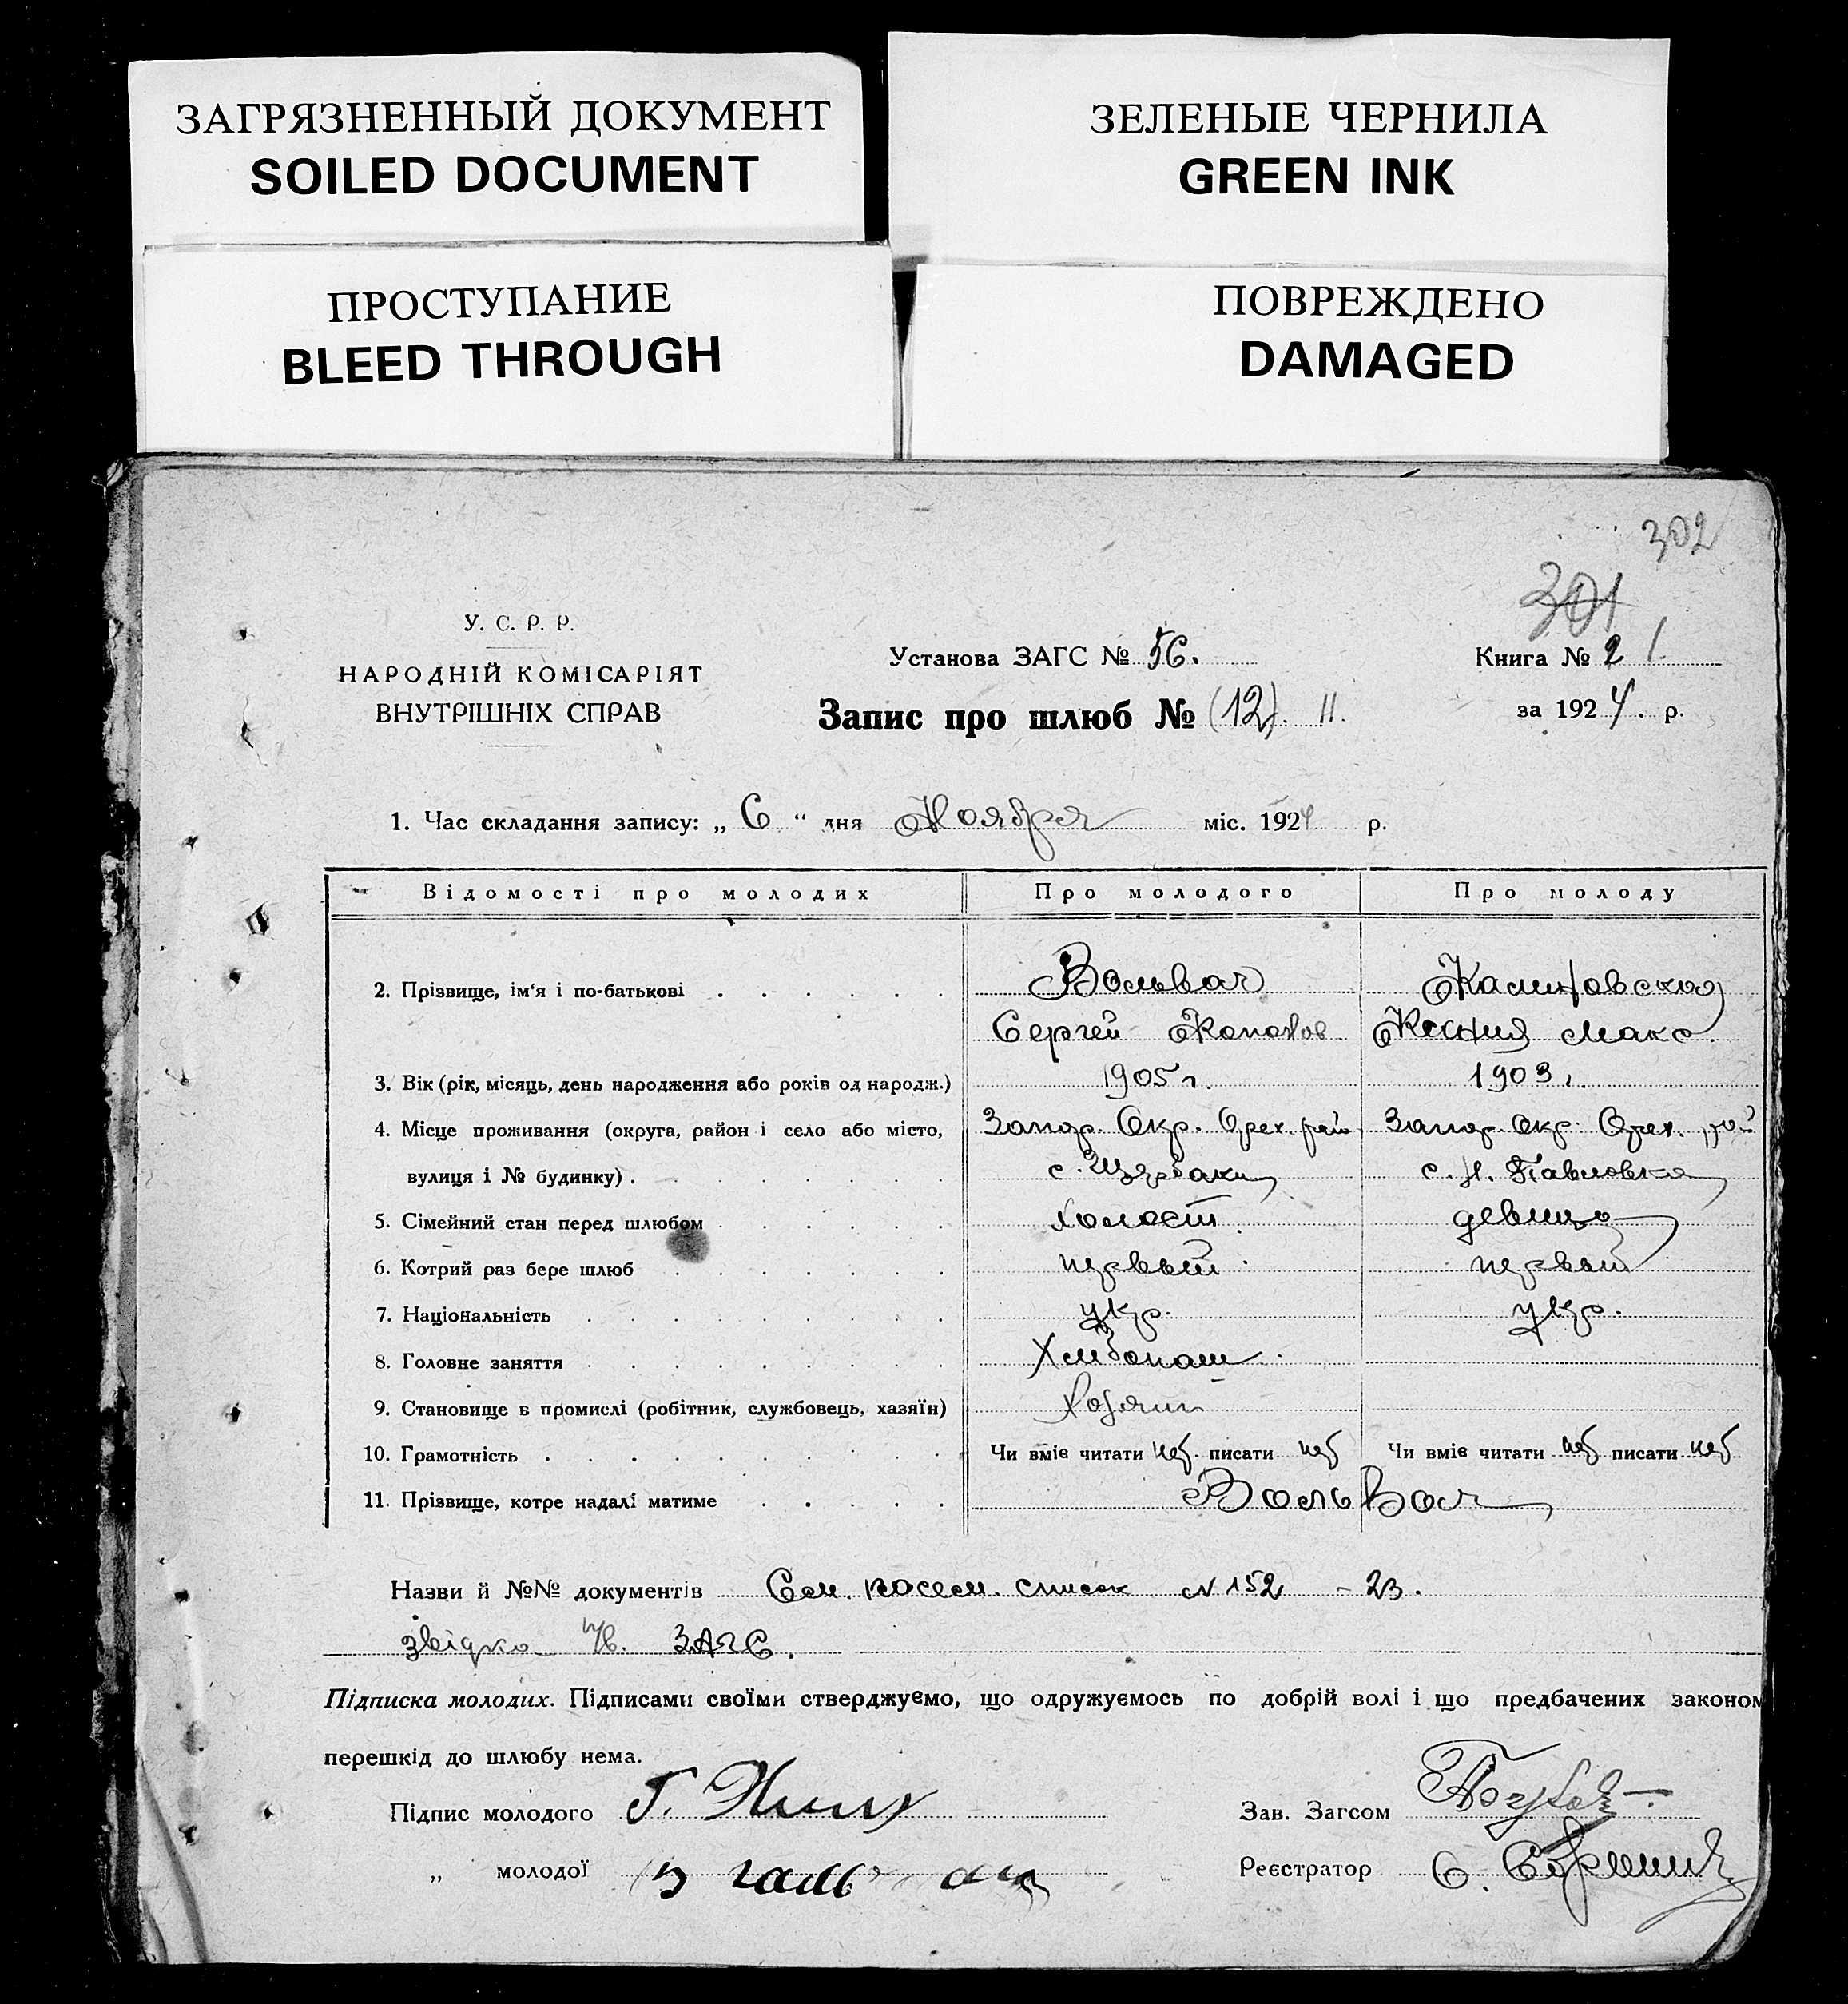 ЗАГРЯЗНЕННЫЙ ДОКУМЕНТ
SOILED DOCUMENT
ЗЕЛЕНЫЕ ЧЕРНИЛА
GREEN INK
ПРОСТУПАНИЕ
BLEED THROUGH
ПОВРЕЖДЕНО
DAMAGED
302
301
У. С. Р. Р.
НАРОДНІЙ КОМІСАРІЯТ
ВНУТРІШНІХ СПРАВ
Установа ЗАГС № 56.
Книга № 2 1.
Запис про шлюб № (12). 11.
за 1924. р.
1. Час складання запису: „ 6 “ дня Ноября міс. 1924 р.
Відомості про молодих Про молодого Про молоду
2. Прізвище, ім'я і по-батькові Вольвач Калиновская
Сергей Конанов. Ксения Макс.
3. Вік (рік, місяць, день народження або років од народж.) 1905 г. 1903 г.
4. Місце проживання (округа, район і село або місто, Запор. Окр. Орех. рай Запор. Окр. Орех. рай
вулиця і № будинку) . с. Щербаки с. Н. Павловка
5. Сімейний стан перед шлюбом холост. девица
6. Котрий раз бере шлюб первый первый
7. Національність укр. укр.
8. Головне заняття Хлебопаш.
9. Становище в промислі (робітник, службовець, хазяїн) Хозяин
10. Грамотність Чи вміє читати писати Чи вміє читати писати
11. Прізвище, котре надалі матиме Вольвач
Назви й №№ документів список N 152 - 23.
звідка ЗАГС.
Підписка молодих. Підписами своїми стверджуємо, що одружуємось по добрій волі і що предбачених законом
перешкід до шлюбу нема.
Підпис молодого
Зав. Загсом
„ молодої
Реєстратор С.